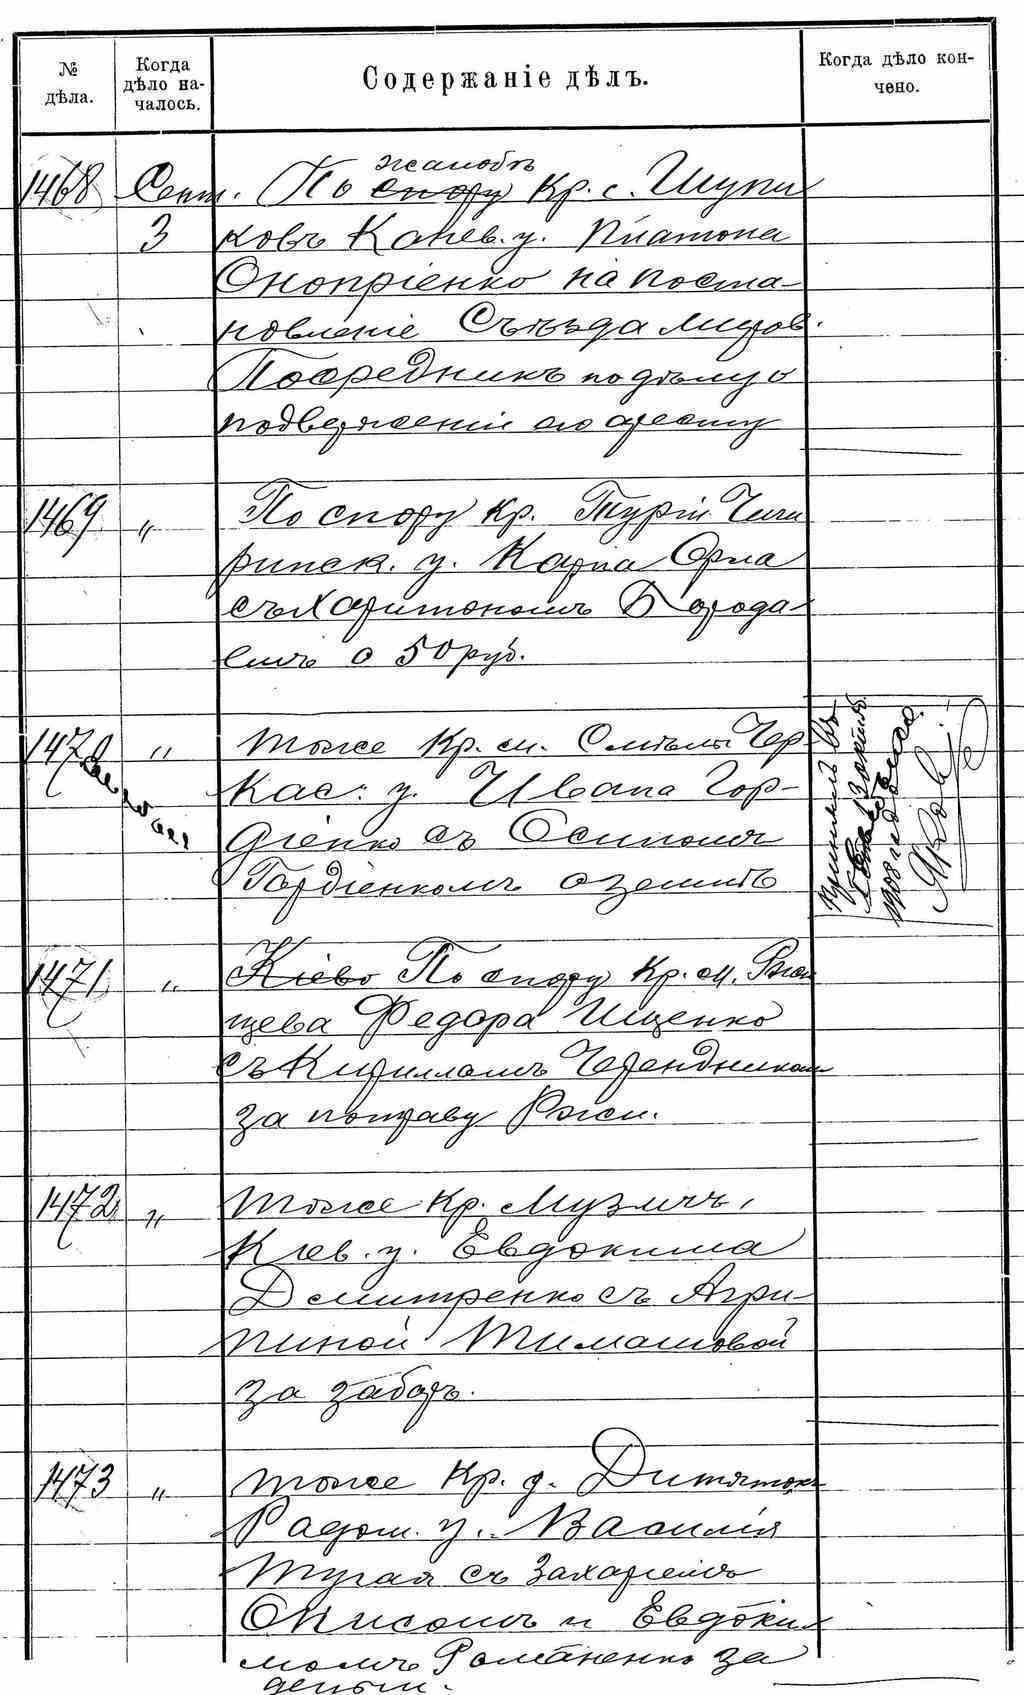 № дѣла.
Когда дѣло началось.
Содержаніе дѣлъ.
Когда дѣло кончено.
1468 Сент. По жалобѣ спору Кр. с. Шупи
3 ковъ Канев. у. Платона
Оноприенко на поста-
новленіе Съѣзда миров.
Посредниковъ по дѣлу о
подверженіи его аресту
1469 " По спору Кр. Туріи Чиги
ринск. у. Карпа Орла
съ Харитономъ Борода-
емъ о 50 руб.
1470 " тоже Кр. м. Смѣлы Чер-
кас: у. Ивана Гор-
діенко съ Осипомъ
Гордіенкомъ о землѣ
1471 " Кіево По спору Кр. м. Ржи
щева Федора Ищенко
съ Кирилломъ Черендникомъ
за потраву Ржи.
1472 " тоже Кр. Музичъ,
Кіев. у. Евдокима
Дмитренко съ Агри-
пиной Тимашовой
за заборъ.
1473 " тоже Кр. д. Дитятокъ
Радом. у. Василія
Тугая съ Захаріемъ
и Евдоки
момъ Романенко за
деньги.